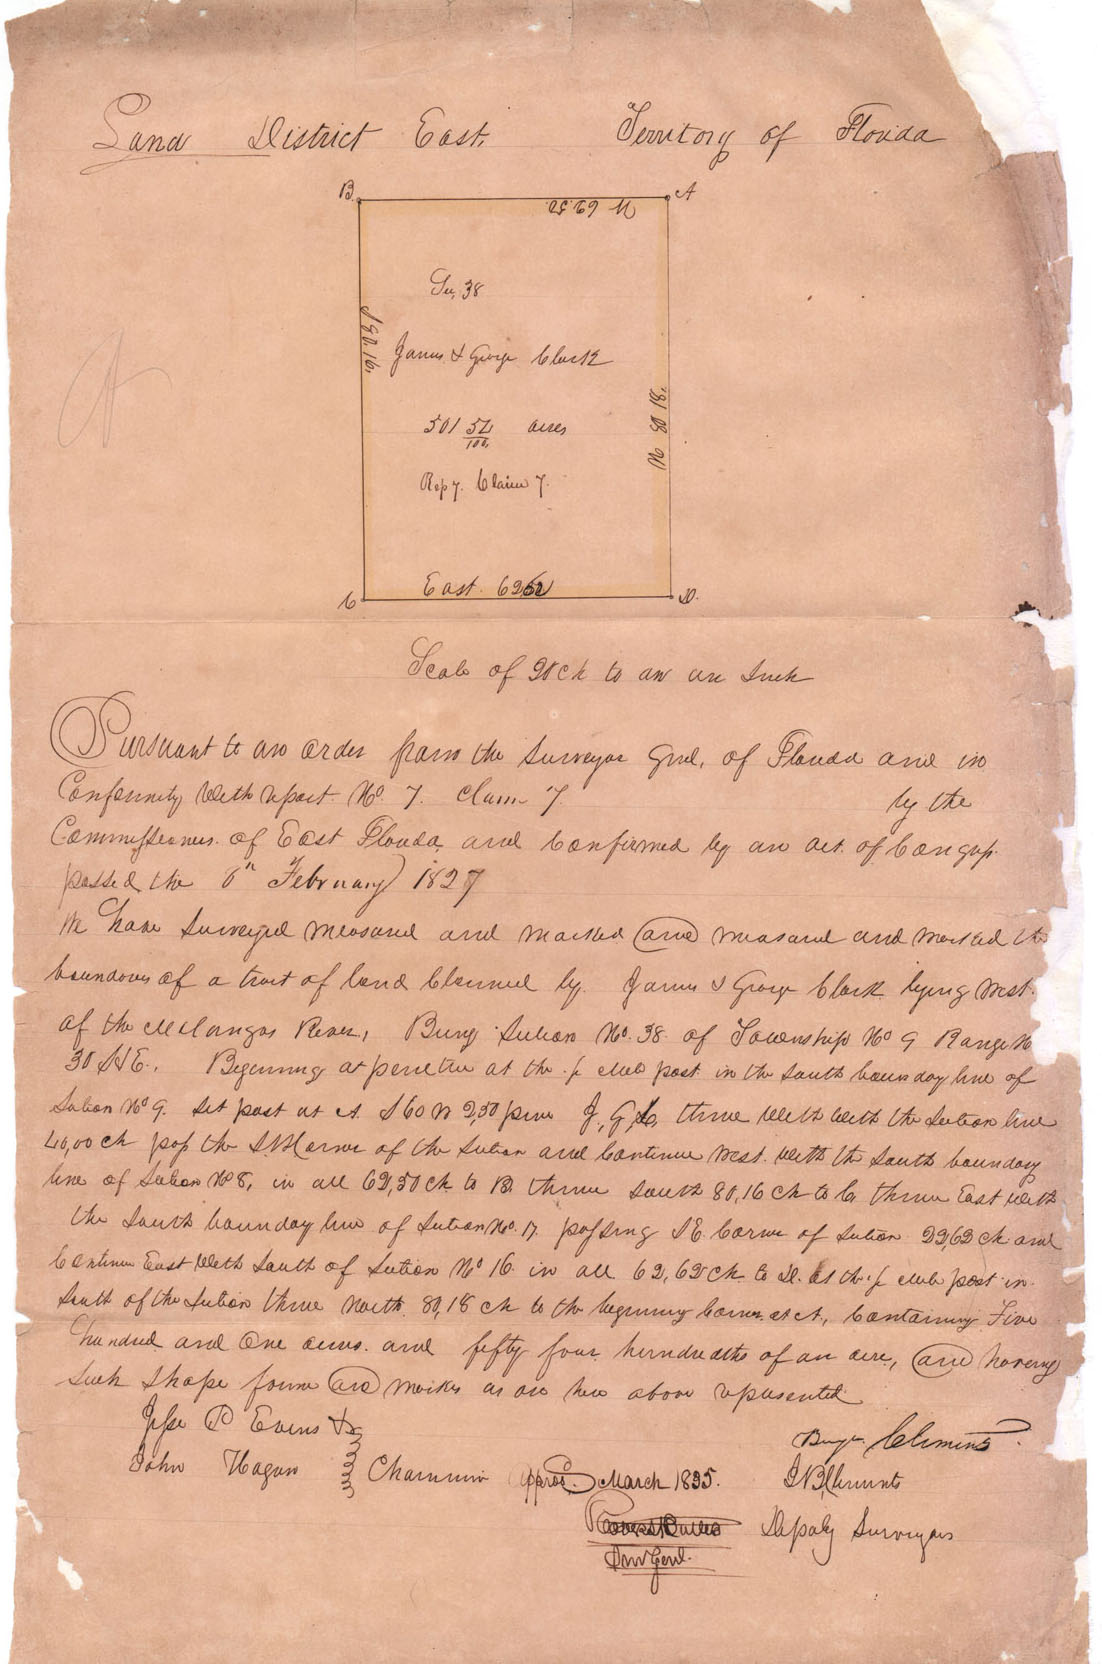 Land District East. Territory of Florida
B. A
W 62.52.
Sec, 38
S 80.16.
James & George Clark
N 80 18.
501 54/100. acres
Rep 7. Claim 7.
East. 62,62
C D.
Scale of 20 ch to an an Inch
Pursuant to an order from the Surveyor Genl, of Florida and in
Conformity With report No. 7. Claim 7. by the
Commissioners. of East Florida, and Confirmed by an act. of Congress.
passed the 6th February 1827
We have Surveyed measured and marked and measured and marked the
boundaries of a tract of land Claimed by James & George Clark lying West.
of the River, Being Section No. 38. of Township No 9 Range N
30 S&E. Beginning at at the 1/2 mile post in the South boundary line of
Section No 9. Set post at A. S 60 W 2,50 pine J, G, C, thence With With the Section line
40,00 ch pass the SW Corner of the Section and Continue West. With the South boundary
line of Section No 8, in all 62,50 ch to B. thence South 80,16 ch to C thence East With
the South boundary line of Section No. 17. passing S E. Corner of Section 22,62 ch and
Continue East With South of Section No 16. in all 62,62 ch to D. at the 1/2 mile post in
South of the Section thence North. 80,18 ch to the beginning Corner. at A, Containing Five
hundred and One acres. and fifty four hundredths of an acre, and having
Such Shape forme and marks as are here above represented
Jesse P Evens &
John Hagan Chainmin
Approd. March 1835.
Benjn. Clements.
J B Clements
Robert Butler
Deputy Surveyors
Surv Genl.